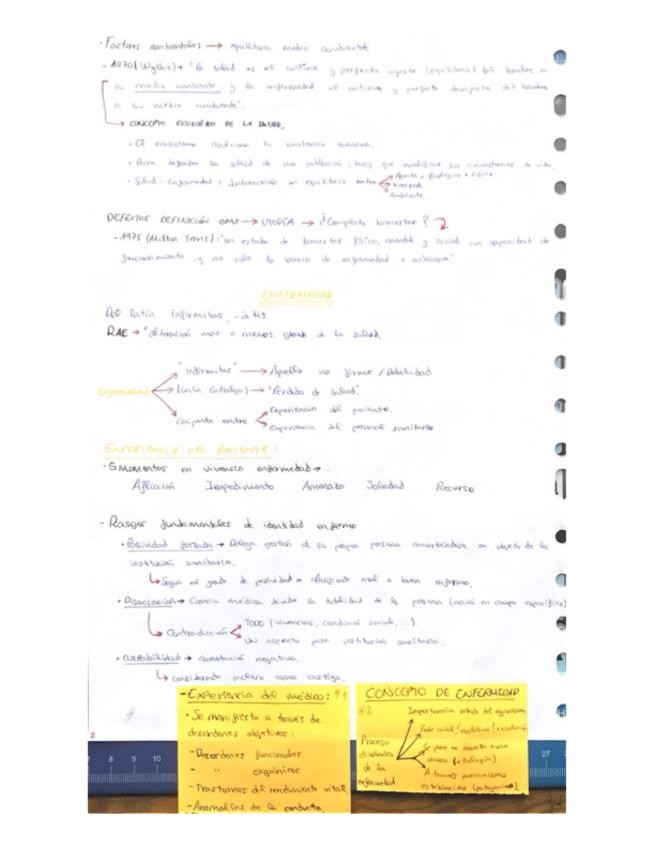 · Factores ambientales → equilibrio medio ambiente
- 1970 (Wylie) → "la salud es el continuo y perfecto ajuste (equilibrio) del hombre a
su medio ambiente, y la enfermedad el continuo y perfecto desajuste del hombre
a su medio ambiente".
→ CONCEPTO ECOLÓGICO DE LA SALUD.
· El ecosistema condiciona la existencia humana.
· Para defender la salud de una población, hay que modificar sus circunstancias de vida.
· Salud - Enfermedad = Interacción en equilibrio entre
Agente → Biológico o Físico
Huésped
Ambiente.
DEFECTOS DEFINICIÓN OMS → UTOPÍA → ¿Completo bienestar?
- 1975 (Milton Terris): "un estado de bienestar físico, mental y social con capacidad de
funcionamiento, y no solo la ausencia de enfermedad o"
ENFERMEDAD
Del latín infirmitas, -atis.
RAE → "alteración más o menos grave de la salud.
Enfermedad
"infirmitas" → Aquello no firme / Debilidad
(Laín Entralgo) → "Pérdida de salud".
Conjunto entre
Experiencia del paciente.
Experiencia del personal sanitario
EXPERIENCIA DEL PACIENTE:
- 5 momentos en vivencia enfermedad →
Aflicción Impedimento Amenaza Soledad Recurso
- Rasgos fundamentales de identidad enfermo
· Pasividad forzada → Delega gestión de su propia persona convirtiéndose en objeto de la
institución sanitaria.
→ Según el grado de pasividad = clasificado mal o buen enfermo.
· Disociación → Ciencia médica divide la totalidad de la persona ( en campo específico)
→ Contradicción
TODO (vivencias, condición social, ...).
UN aspecto para institución sanitaria.
· Culpabilidad → connotación negativa.
→ considerado incluso como castigo.
- Experiencia del médico: #1
· Se manifiesta a través de
desórdenes objetivos:
- Desórdenes funcionales.
- " orgánicos.
- Trastornos del rendimiento vital.
- Anomalías de la conducta.
CONCEPTO DE ENFERMEDAD
#2
Proceso
dinámico
de la
enfermedad
Importancia estado del organismo
Fase inicial / evolutiva / resolución
Se pone en marcha causa
(etiología)
A través mecanismos
establecidos (patogenia)
2
7 8 9 10 27